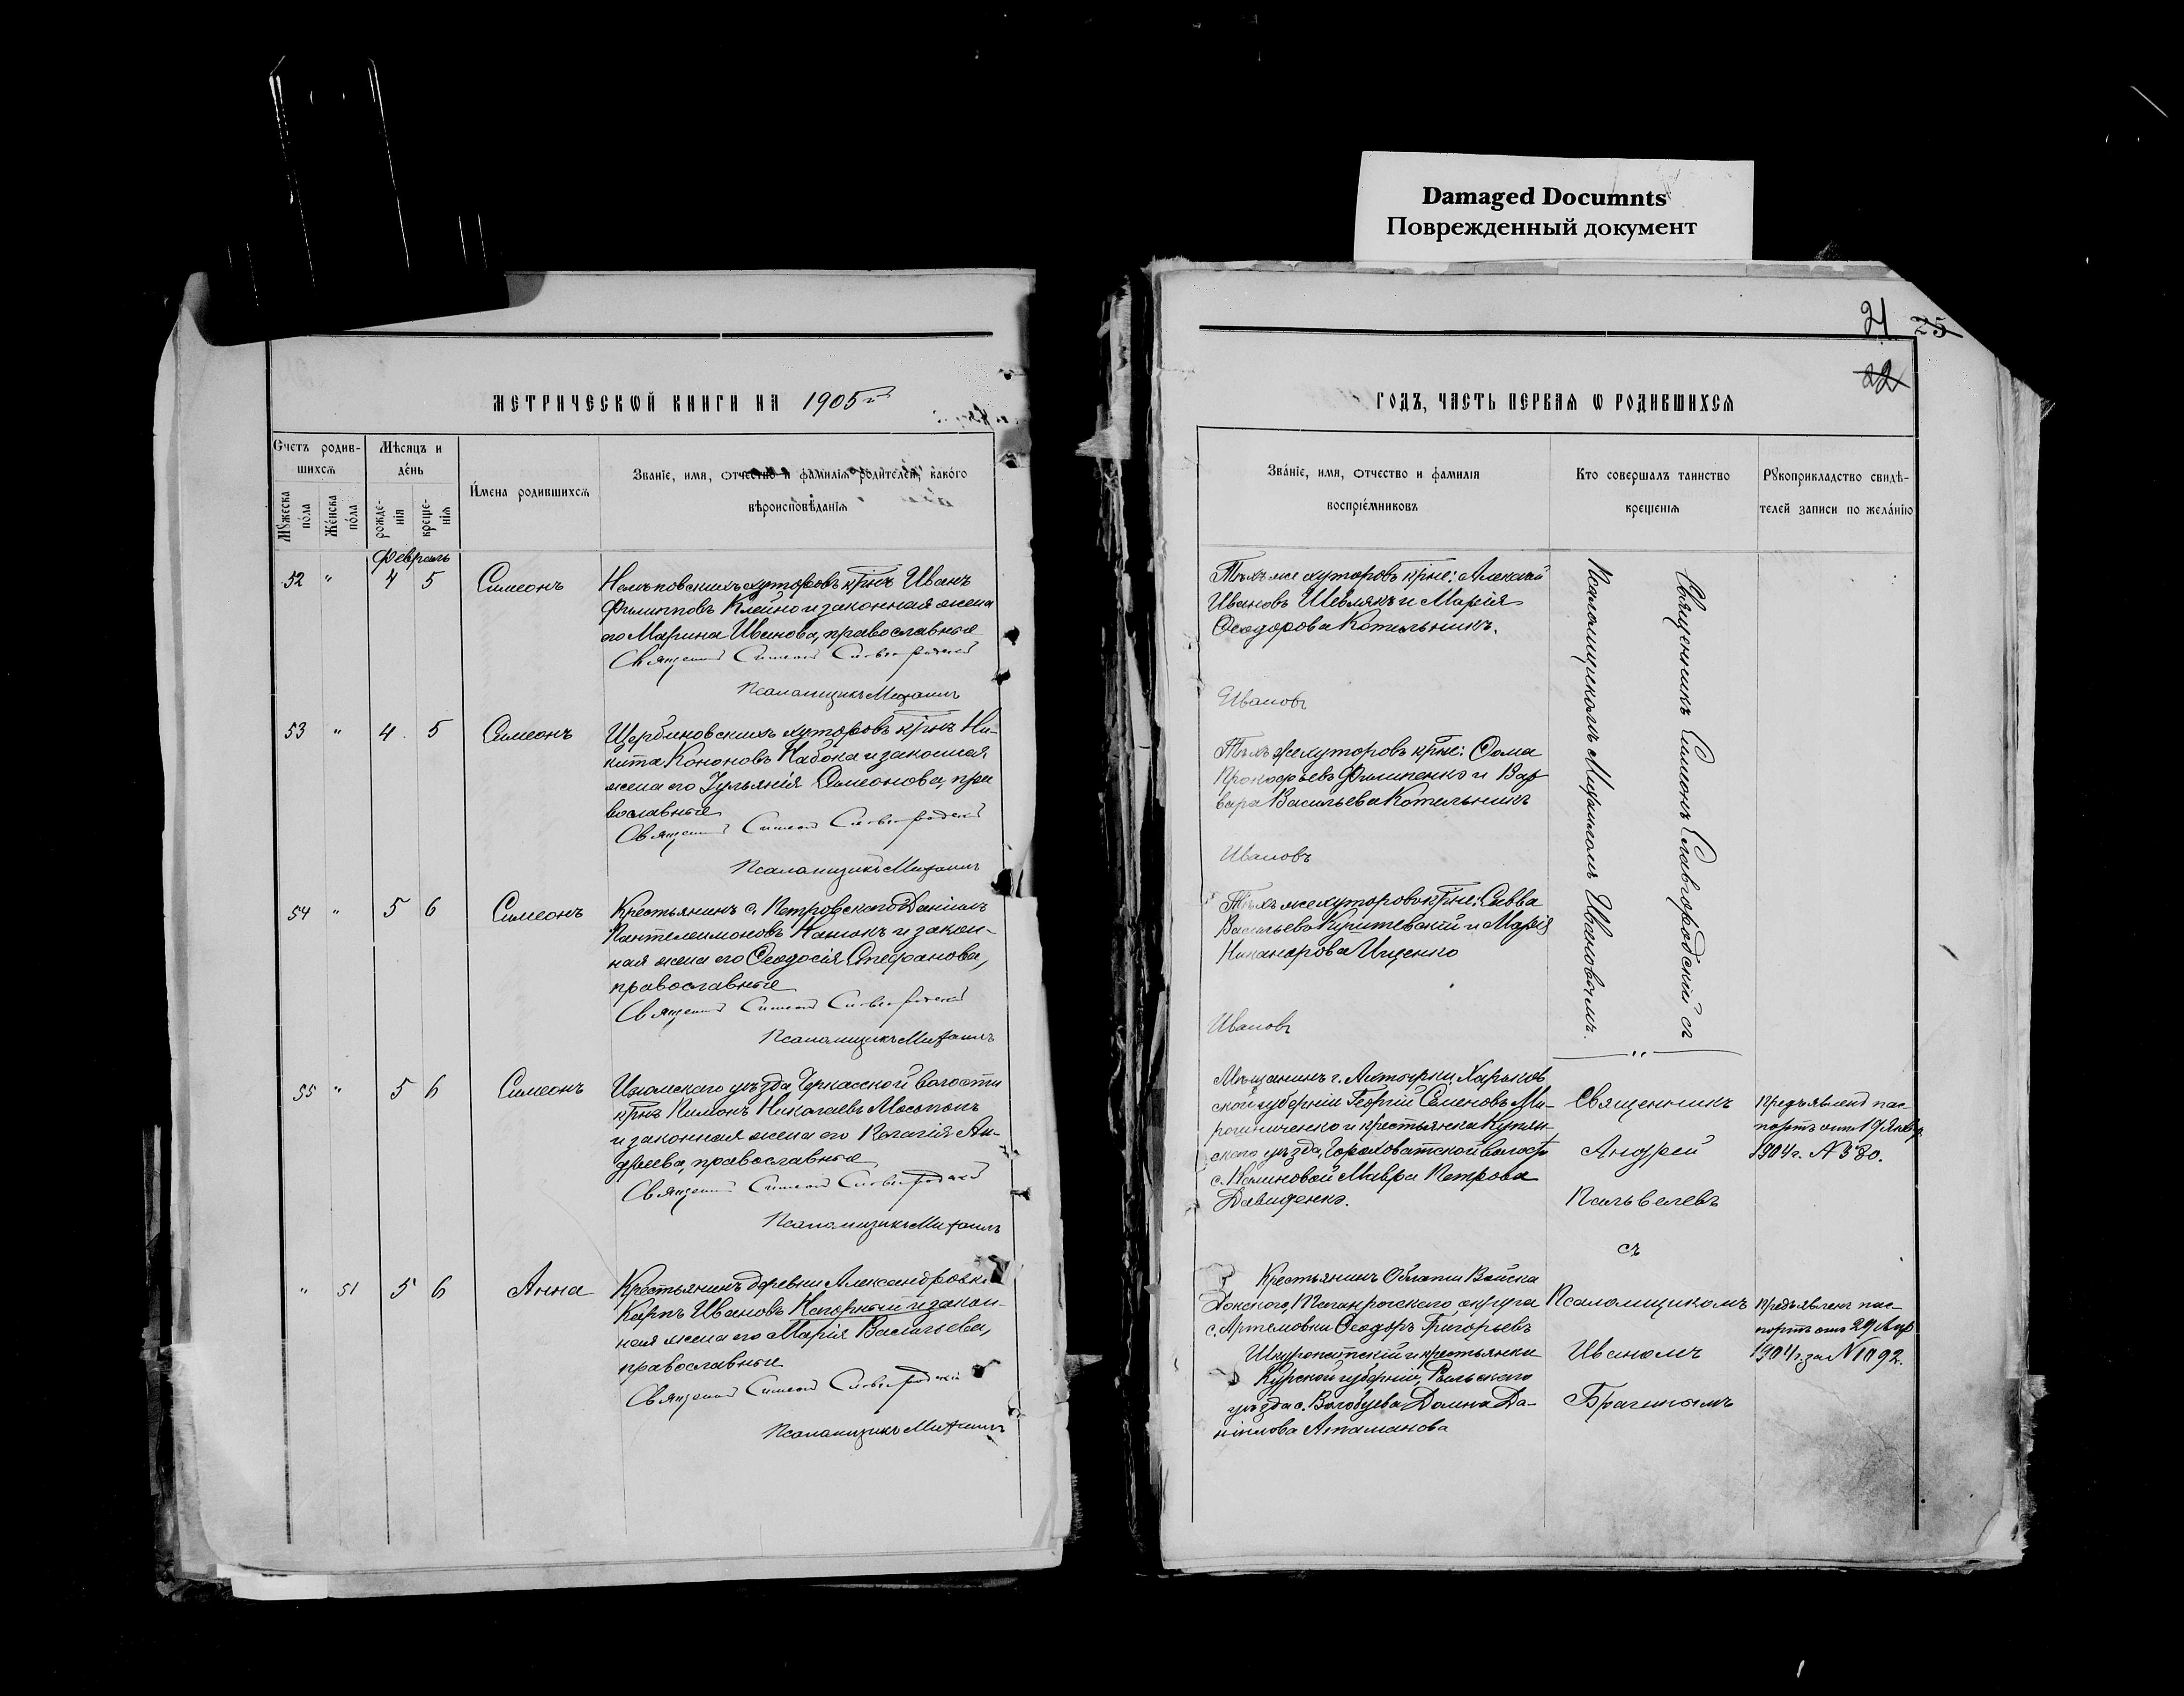 Damaged Documnts
Поврежденный документ
21 25
22
МЕТРИЧЕСКОЙ КНИГИ НА 1905й
Счетъ родив-
шихся
Мѣсяцъ и
день
Имена родившихся
Званіе, имя, отчество и фамилія родителей, какого
вѣроисповѣданія
Мужеска
пола
Женска
пола
рожде-
нія
креще-
нія
Февраль
52 " 4 5 Симеонъ
хуторовъ крнъ Иванъ
Филипповъ Клейно и законная жена
его Марина Иванова, православные
Священникъ Симеонъ Славгородскій
Псаломщикъ Михаилъ
53 " 4 5 Симеонъ
Щербиновскихъ хуторовъ крнъ Ни-
кита Кононовъ Набока и законная
жена его Іульянія Симеонова, пра
вославные
Священникъ Симеонъ Славгородскій
Псаломщикъ Михаилъ
54 " 5 6 Симеонъ
Крестьянинъ с. Петровскаго Даніилъ
Пантелеимоновъ и закон-
ная жена его Ѳеодосія Стефанова,
православные
Священникъ Симеонъ Славгородскій
Псаломщикъ Михаилъ
55 " 5 6 Симеонъ
Изюмскаго уѣзда Черкасской волости
крнъ Николаевъ
и законная жена его Пелагія Ан-
дреева, православные
Священникъ Симеонъ Славгородскій
Псаломщикъ Михаилъ
" 51 5 6 Анна
Крестьянинъ деревни Александровки
Карпъ Ивановъ Нагорный и закон-
ная жена его Марія Васильева,
православные
Священникъ Симеонъ Славгородскій
Псаломщикъ Михаилъ
ГОДЪ, ЧАСТЬ ПЕРВАЯ О РОДИВШИХСЯ
Званіе, имя, отчество и фамилія
воспріемниковъ
Кто совершалъ таинство
крещенія
Рукоприкладство свидѣ-
телей записи по желанію
Тѣхъ же хуторовъ крне: Алексѣй
Ивановъ Шевлякъ и Марія
Ѳеодорова Котельникъ.
Ивановъ
Тѣхъ же хуторовъ крне: Ѳома
Прокофьевъ Филипенко и Вар
вара Васильева Котельникъ
Ивановъ
Тѣхъ же хуторовъ крне: Савва
Васильевъ и Марія
Никанорова Ищенко
Ивановъ
Священникъ Симеонъ Славгородскій съ
Псаломщикомъ Михаиломъ Ивановымъ.
Мѣщанинъ г. Ахтырки Харьков
ской губерніи Георгій Семеновъ Ми-
рошниченко и крестьянка Купян-
скаго уѣзда, Гороховатской волости
с. Мавра Петрова
Давиденко.
Священникъ
Андрей
съ
Псаломщикомъ
Иваномъ
Брагинымъ
Предъявленъ пас-
портъ отъ 19 Январ
1904 г. N 380.
Крестьянинъ Области Войска
Донского, Таганрогскаго округа
с. Артемовки Ѳеодоръ Григорьевъ
Шкуропатскій и крестьянка
Курской губерніи, Рыльскаго
уѣзда с. Домна Да-
ніилова Атаманова
Предъявленъ пас-
портъ отъ 29 Апр
1904 г. за N 1092.